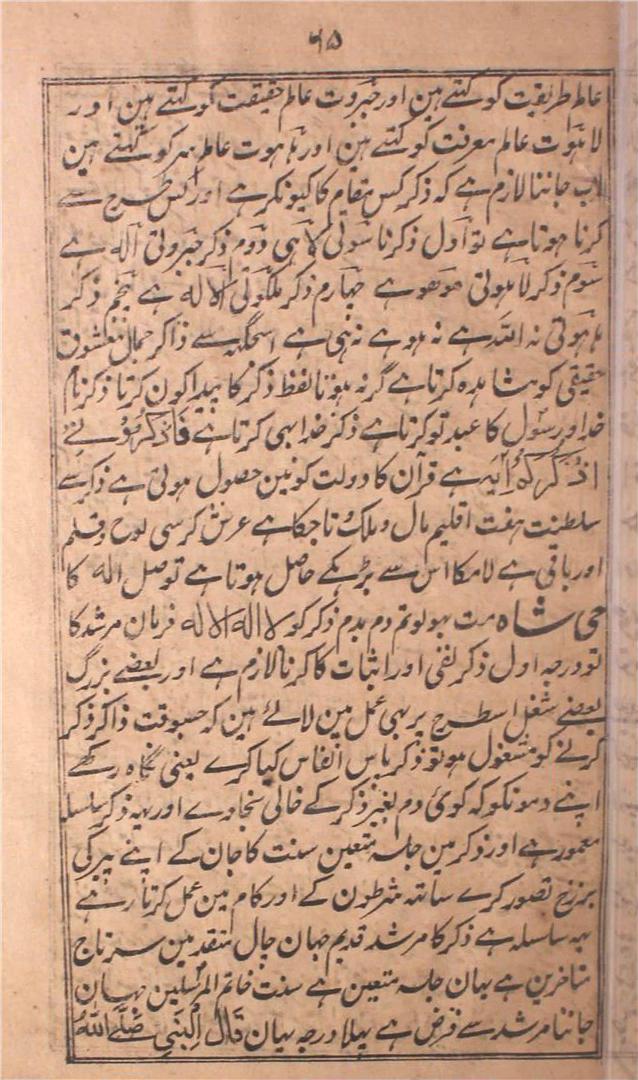 ۶۵
عالم طریقت کو کہتے ہین اور جبروت عالم حقیقت کو کہتے ہین اور
لاہوت عالم معرفت کو کہتے ہین اور ہاہوت عالم سر کو کہتے ہین
اب جاننا لازم ہے کہ ذکر کس مقام کا کیونکر ہے اور کس طرح سے
کرنا ہوتا ہے تو اول ذکر ناسوتی لاہی دوم ذکر جبروتی الہ ہے
سوم ذکر لاہوتی ہو ہے چہارم ذکر ملکوتی الا لہ ہے پنجم ذکر
ہاہوتی نہ اللہ ہے نہ ہو ہے نہ ہی ہے اسجگہہ سے ذاکر جمال معشوق
حقیقی کو مشاہدہ کرتا ہے گر نہ ہوتا لفظ ذکر کا پیدا کون کرتا ذکر نام
خدا و رسول کا عبد تو کرتا ہے ذکر خدا بہی کرتا ہے فاذکرونے
اذکرکم آیہ ہے قرآن کا دولت کونین حصول ہوتی ہے ذکر سے
سلطنت ہفت اقلیم مال و ملک و تا جکا ہے عرش کرسی لوح و قلم
اور باقی ہے لامکا اس سے بڑہکے حاصل ہوتا ہے توصل الہ کا
حی شاہ مت بہولو تم دم بدم ذکر کو لا الہ الا لہ فرمان مرشد کا
تو درجہ اول ذکر نفی اور اثبات کا کرنا لازم ہے اور بعضے بزرگ
بعضے شغل اسطرح پر بہی عمل مین لائے ہین کہ جسوقت ذاکر ذکر
کرنے کو مشغول ہو تو ذکر پاس انفاس کیا کرے یعنی نگاہ رکھے
اپنے دمونکو کہ کوئی دم بغیر ذکر کے خالی نجاوے اور یہہ ذکر سلسلہ
معمور ہے اور ذکر مین جلسہ متعین سنت کا جان کے اپنے پیر کی
برزخ تصور کرے ساتہہ شرطون کے اور کام مین عمل کرتا رہے
یہہ سلسلہ ہے ذکر کا مرشد قدیم جہان جال متقدمین سر تاج
متاخرین ہے یہان جلسہ متعین ہے سنت خاتم المرسلین جہان
جاننا مرشد سے فرض ہے پہلا درجہ بیان قال النبی صلی اللہ